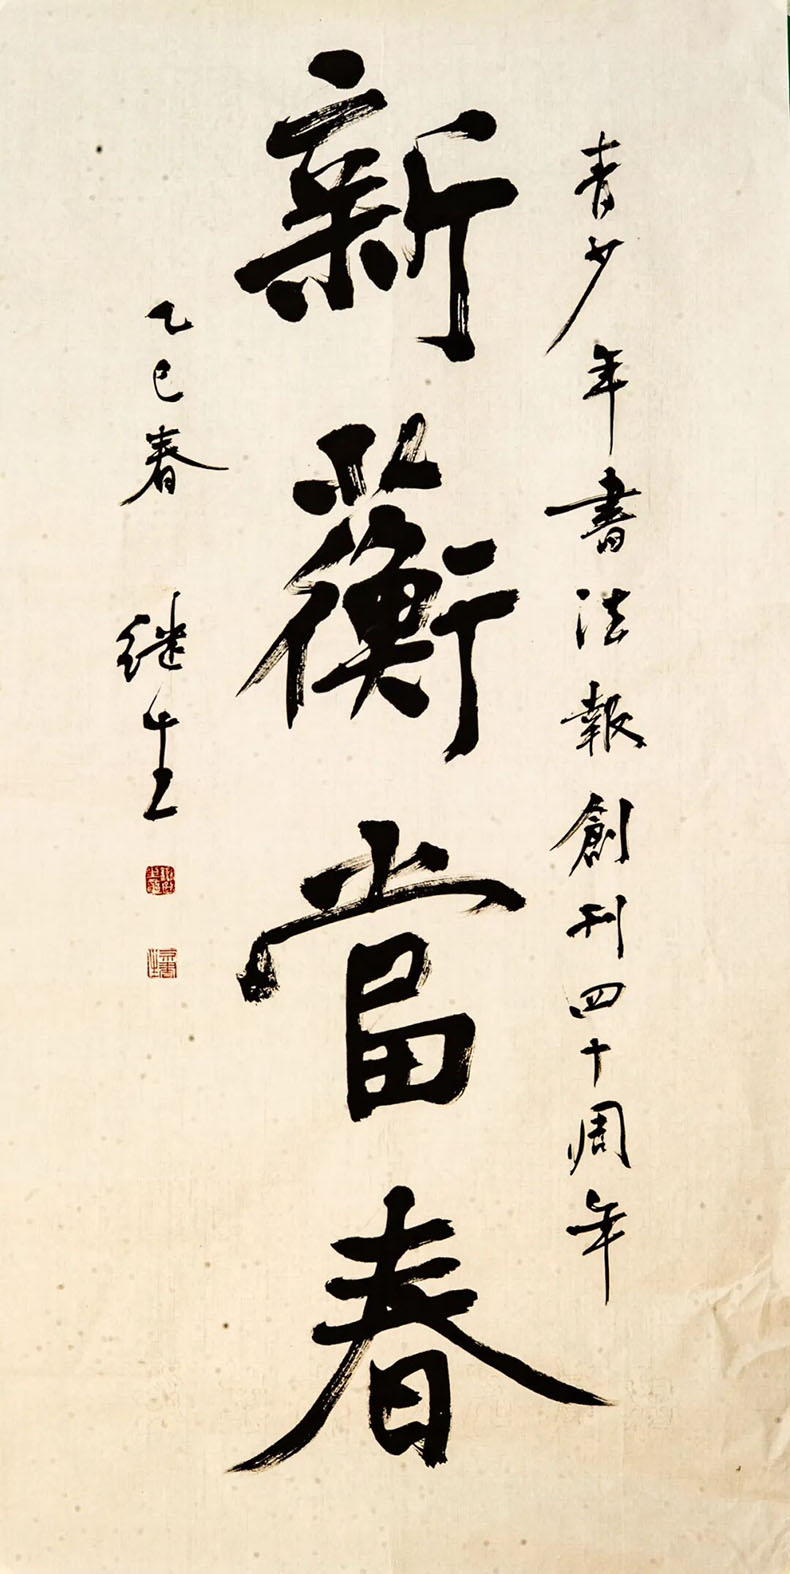 青少年書法報創刊四十周年
新蘅當春
乙巳春
继生